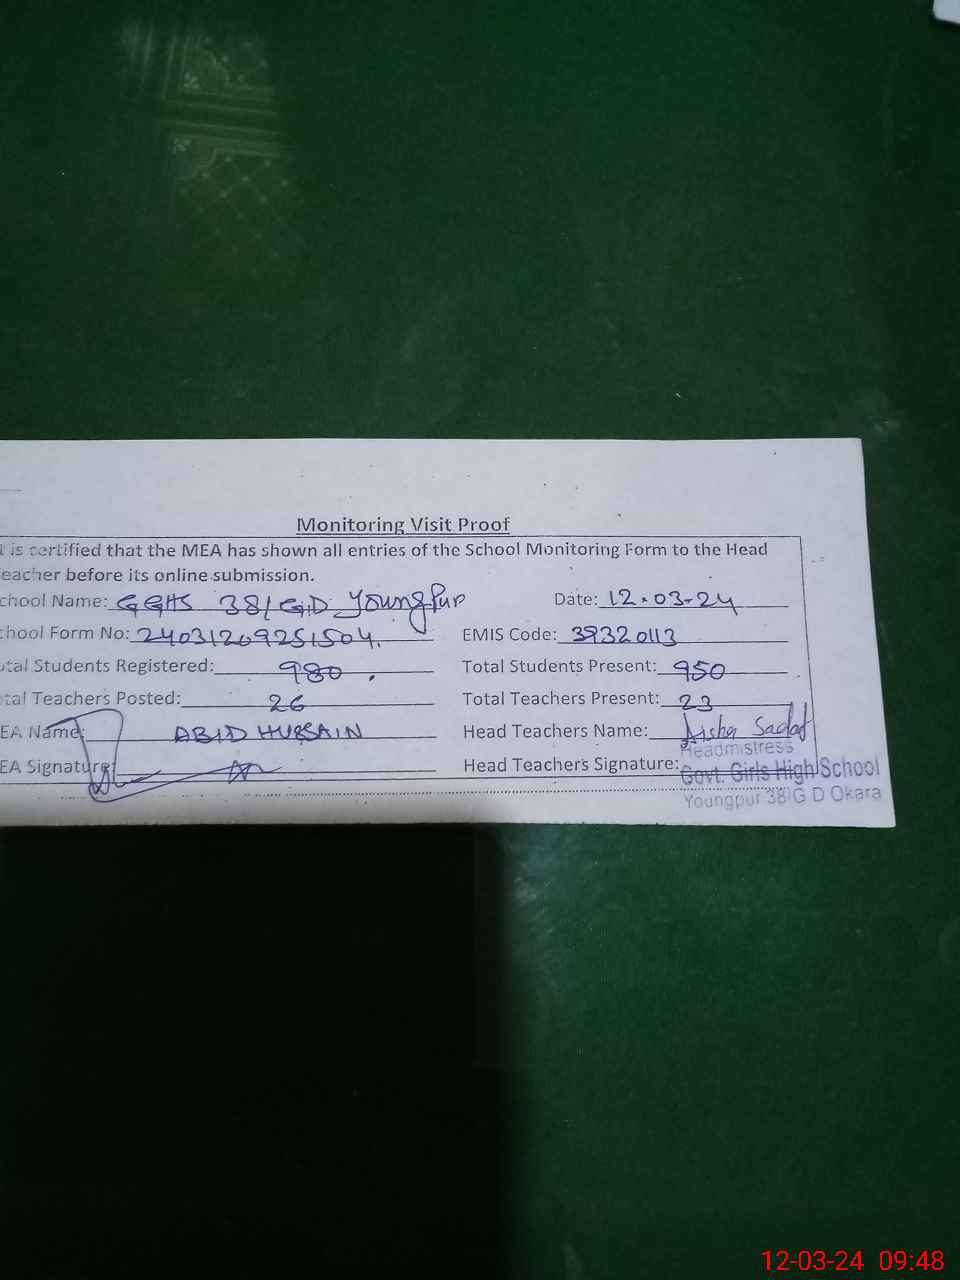 Monitoring Visit Proof
t is certified that the MEA has shown all entries of the School Monitoring Form to the Head
eacher before its online submission.
chool Name: GGHS 38/G.D YoungPur Date: 12.03-24
chool Form No: 24031209251504. EMIS Code: 39320113
otal Students Registered: 980 . Total Students Present: 950
otal Teachers Posted: 26 Total Teachers Present: 23
EA Name: ABID HUSSAIN Head Teachers Name: Aisha Sadaf
EA Signature: Head Teachers Signature:
Headmistress
Govt. Girls High School
Youngpur 38/G D Okara
12-03-24 09:48